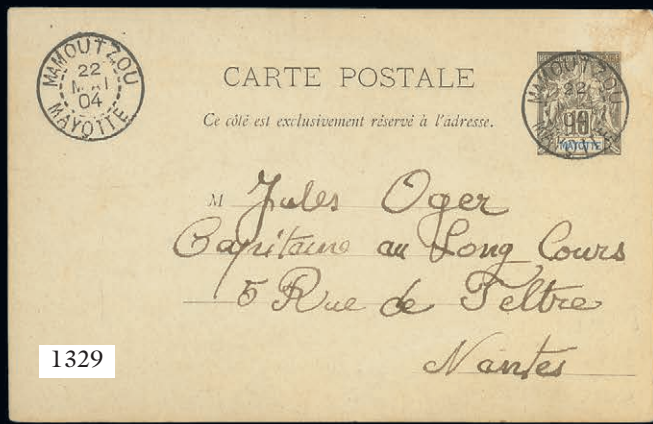 MAMOUTZOU
22
MAI
04
MAYOTTE
CARTE POSTALE
Ce côté est exclusivement réservé à l'adresse.
MAMOUTZOU
22
MAYOTTE
10
MAYOTTE
M Jules Oger
Capitaine au Long Cours
5 Rue de Feltre
Nantes
1329